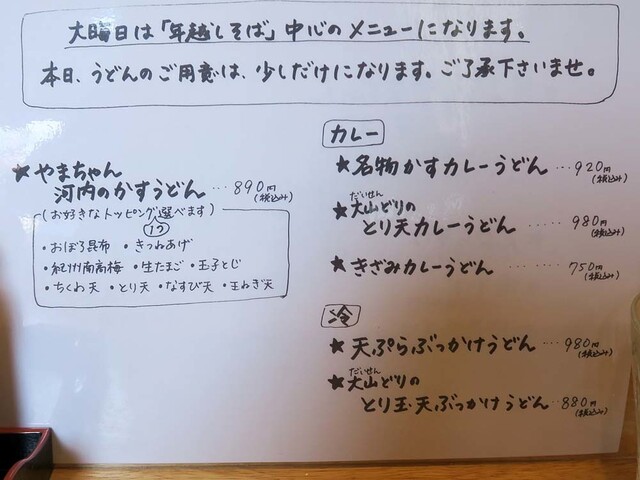 大晦日は「年越しそば」中心のメニューになります。
本日、うどんのご用意は、少しだけになります。ご了承下さいませ。
★やまちゃん
河内のかすうどん ・・・890円
(税込み)
(お好きなトッピング選べます)
1つ
・おぼろ昆布 ・きつねあげ
・紀州南高梅 ・生たまご ・玉子とじ
・ちくわ天 ・とり天 ・なすび天 ・玉ねぎ天
カレー
★名物かすカレーうどん ・・・920円
(税込み)
だいせん
★大山どりの
とり天カレーうどん ・・・980円
(税込み)
★きざみカレーうどん ・・・750円
(税込み)
冷
★天ぷらぶっかけうどん ・・・980円
(税込み)
だいせん
★大山どりの
とり玉天ぶっかけうどん ・・・880円
(税込み)